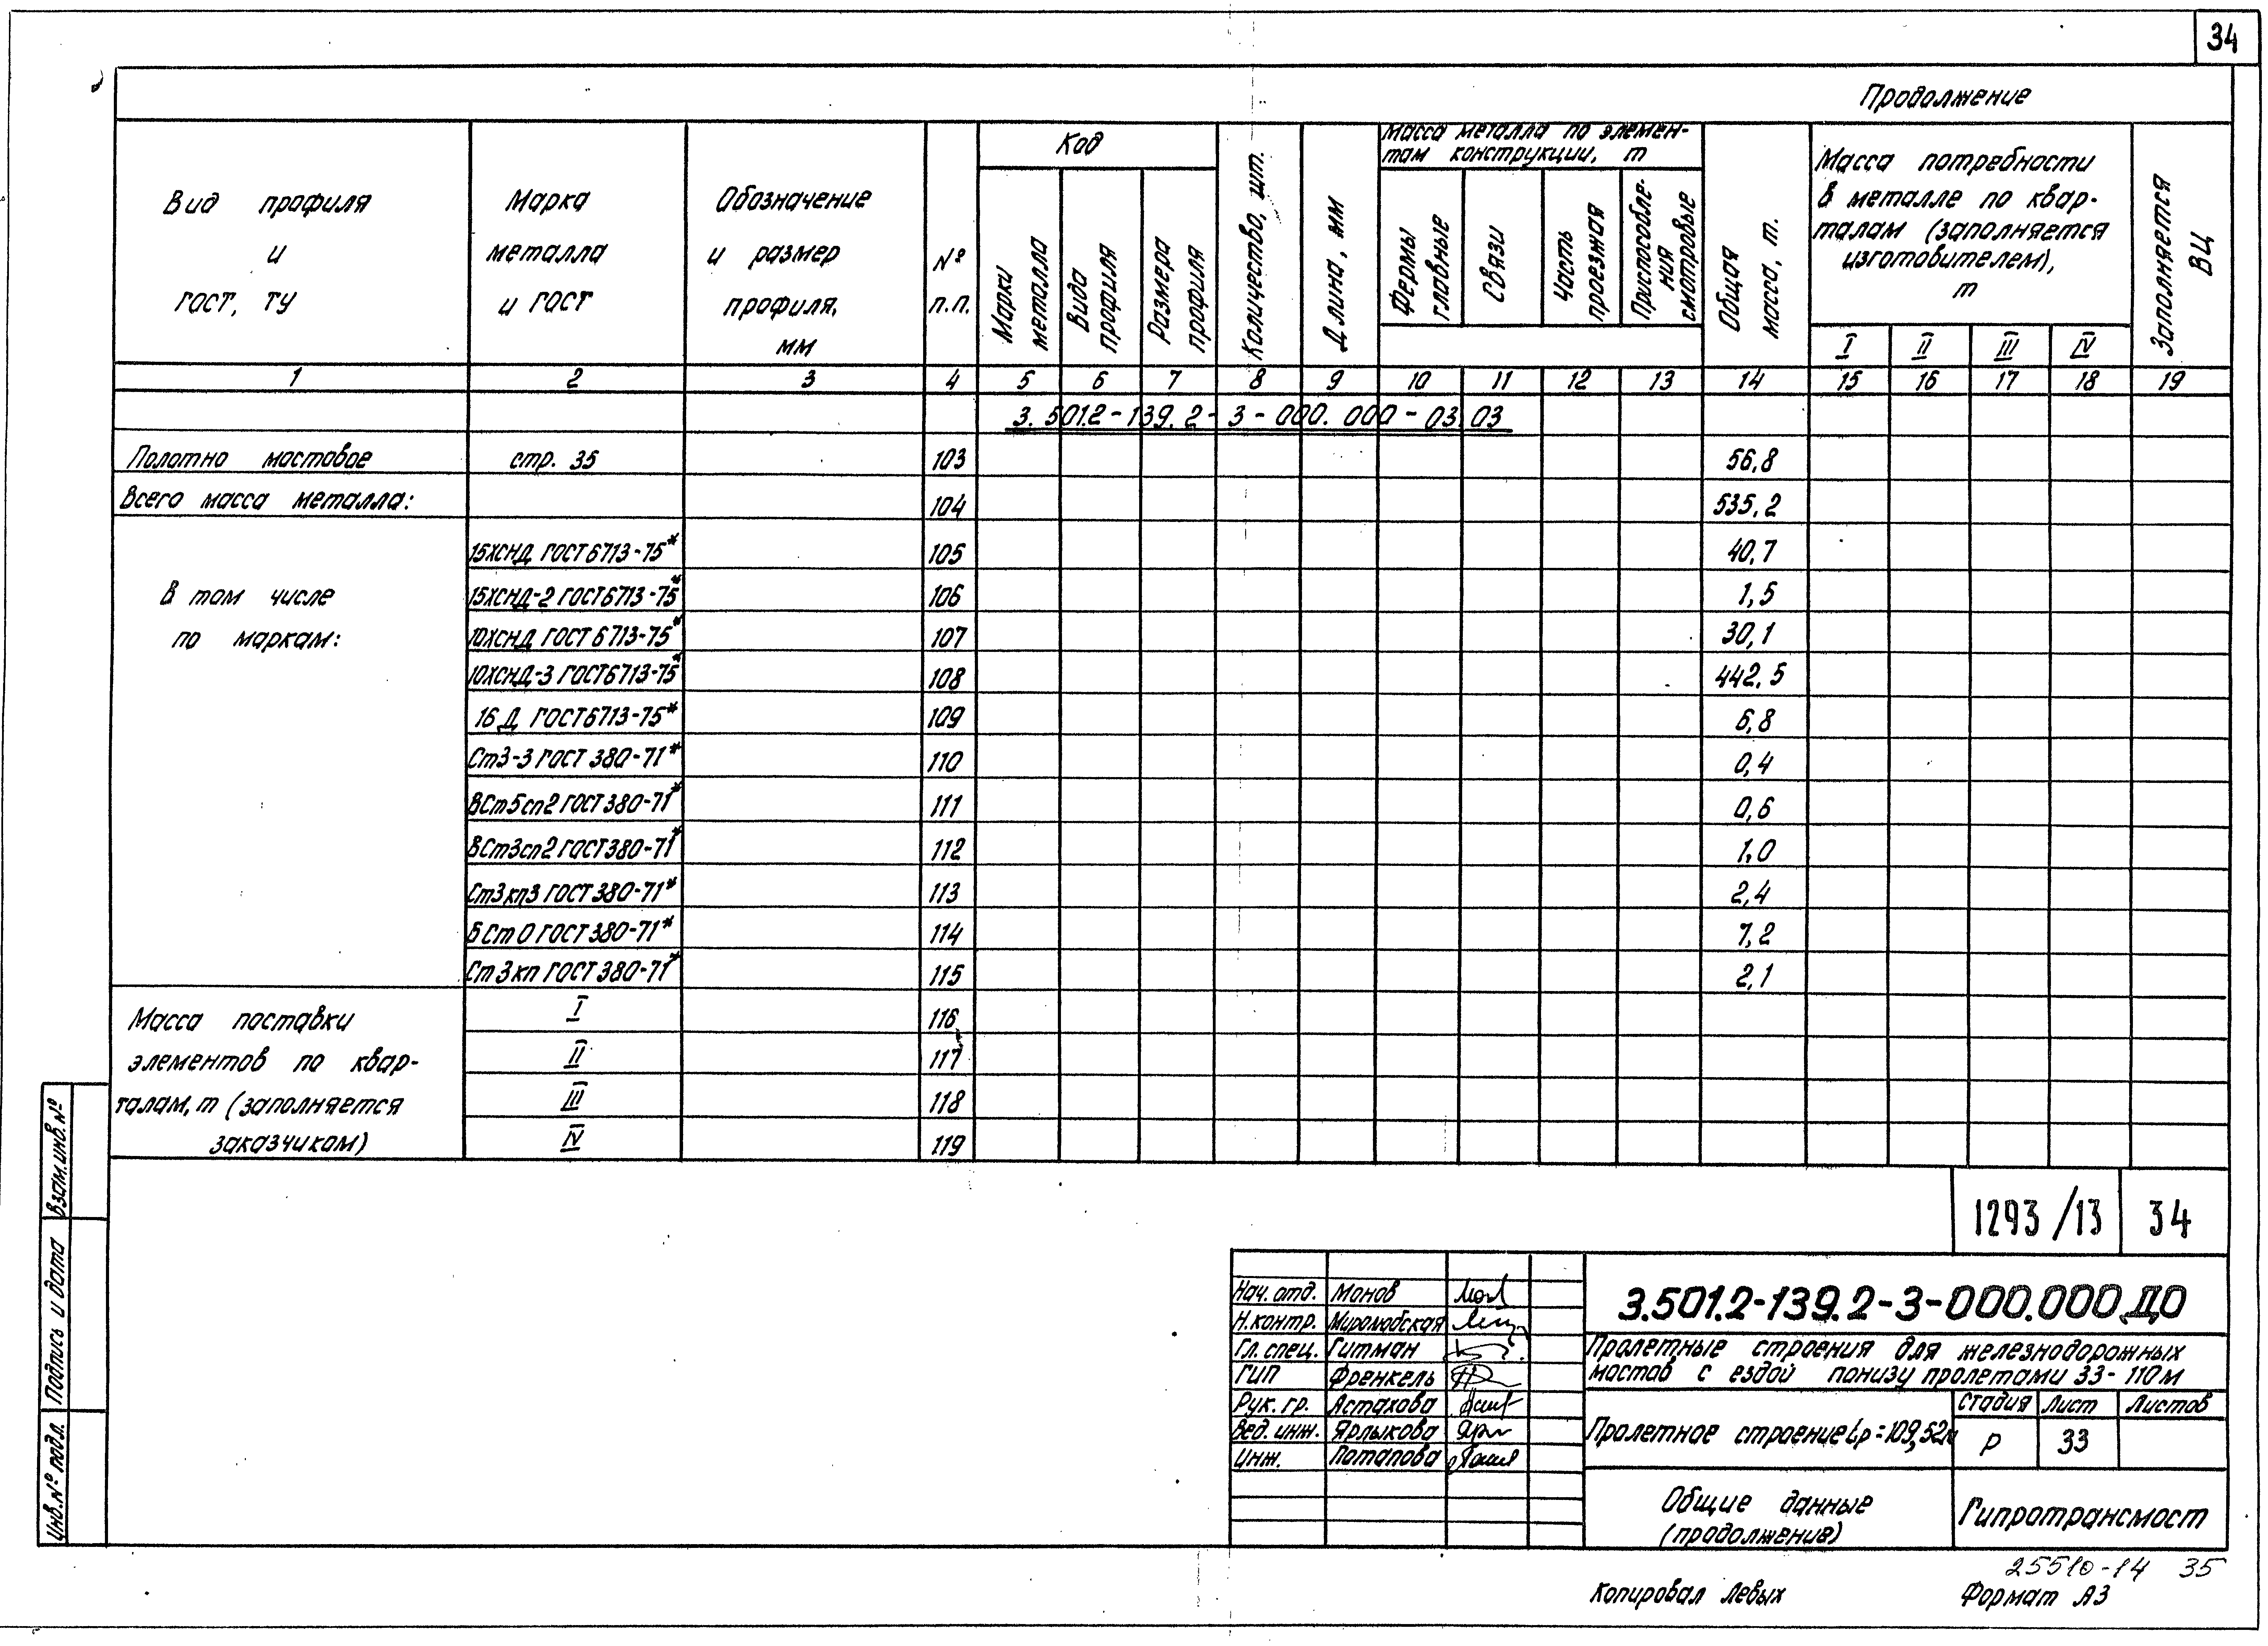 34
Продолжение
Вид профиля и ГОСТ, ТУ
Марка металла и ГОСТ
Обозначение и размер профиля, мм
№ п.п.
Код
Марки металла
Вида профиля
Размера профиля
Количество, шт.
Длина, мм
Масса металла по элемен-
там конструкции, т
Фермы главные
Связи
Часть проезжая
Приспособле-
ния смотровые
Общая масса, т.
Масса потребности
в металле по квар-
талам (заполняется
изготовителем),
т
I II III IV
Заполняется ВЦ
1 2 3 4 5 6 7 8 9 10 11 12 13 14 15 16 17 18 19
3.501.2-139.2-3-000.000-03.03
Полотно мостовое стр. 35 103 56,8
Всего масса металла: 104 535,2
15ХСНД ГОСТ 6713-75* 105 40,7
В том числе 15ХСНД-2 ГОСТ 6713-75* 106 1,5
по маркам: 10ХСНД ГОСТ 6713-75* 107 30,1
10ХСНД-3 ГОСТ 6713-75* 108 442,5
16Д ГОСТ 6713-75* 109 6,8
Ст3-3 ГОСТ 380-71* 110 0,4
ВСт5сп2 ГОСТ 380-71* 111 0,6
ВСт3сп2 ГОСТ 380-71* 112 1,0
Ст3кп3 ГОСТ 380-71* 113 2,4
БСт0 ГОСТ 380-71* 114 7,2
Ст3кп ГОСТ 380-71* 115 2,1
Масса поставки I 116
элементов по квар- II 117
талам, т (заполняется III 118
заказчиком) IV 119
Взам.инв.№
Подпись и дата
Инв.№ подл.
1293/13 34
Нач. отд. Монов
Н.контр. Миролюбская
Гл. спец. Гитман
ГИП Френкель
Рук. гр. Астахова
Вед. инж. Ярлыкова
Инж. Потапова
3.501.2-139.2-3-000.000.ДО
Пролетные строения для железнодорожных
мостов с ездой понизу пролетами 33-110м
Пролетное строение Lр=109,52м
Стадия Лист Листов
Р 33
Общие данные
(продолжение)
Гипротрансмост
25510-14 35
Копировал Левых
Формат А3